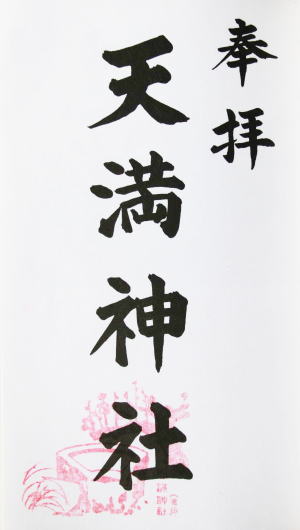 奉拝
天満神社